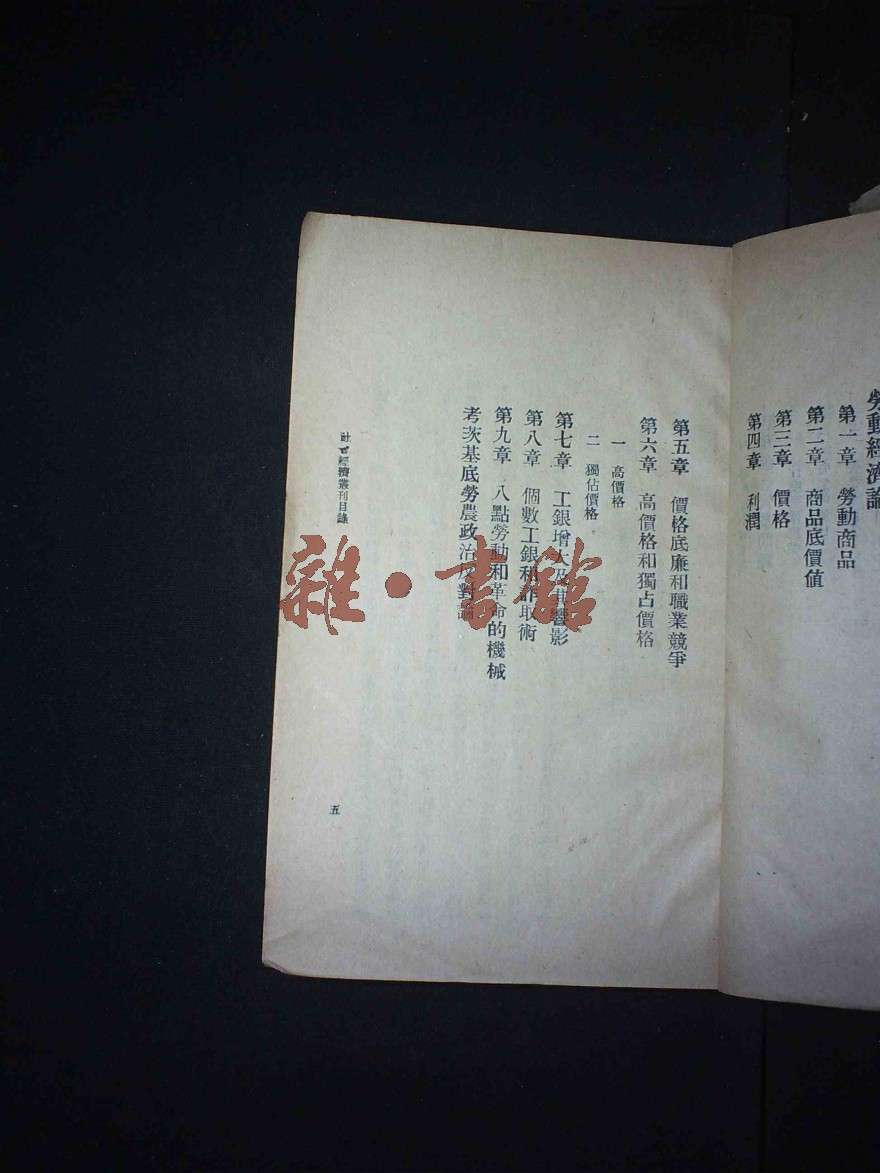 勞動經濟論
第一章 勞動商品
第二章 商品底價值
第三章 價格
第四章 利潤
第五章 價格底廉和職業競爭
第六章 高價格和獨占價格
一 高價格
二 獨佔價格
第七章 工銀增大及其響影
第八章 個數工銀和詐取術
第九章 八點勞動和革命的機械
考茨基底勞農政治反對論
社會經濟叢刊目錄
五
雜·書館